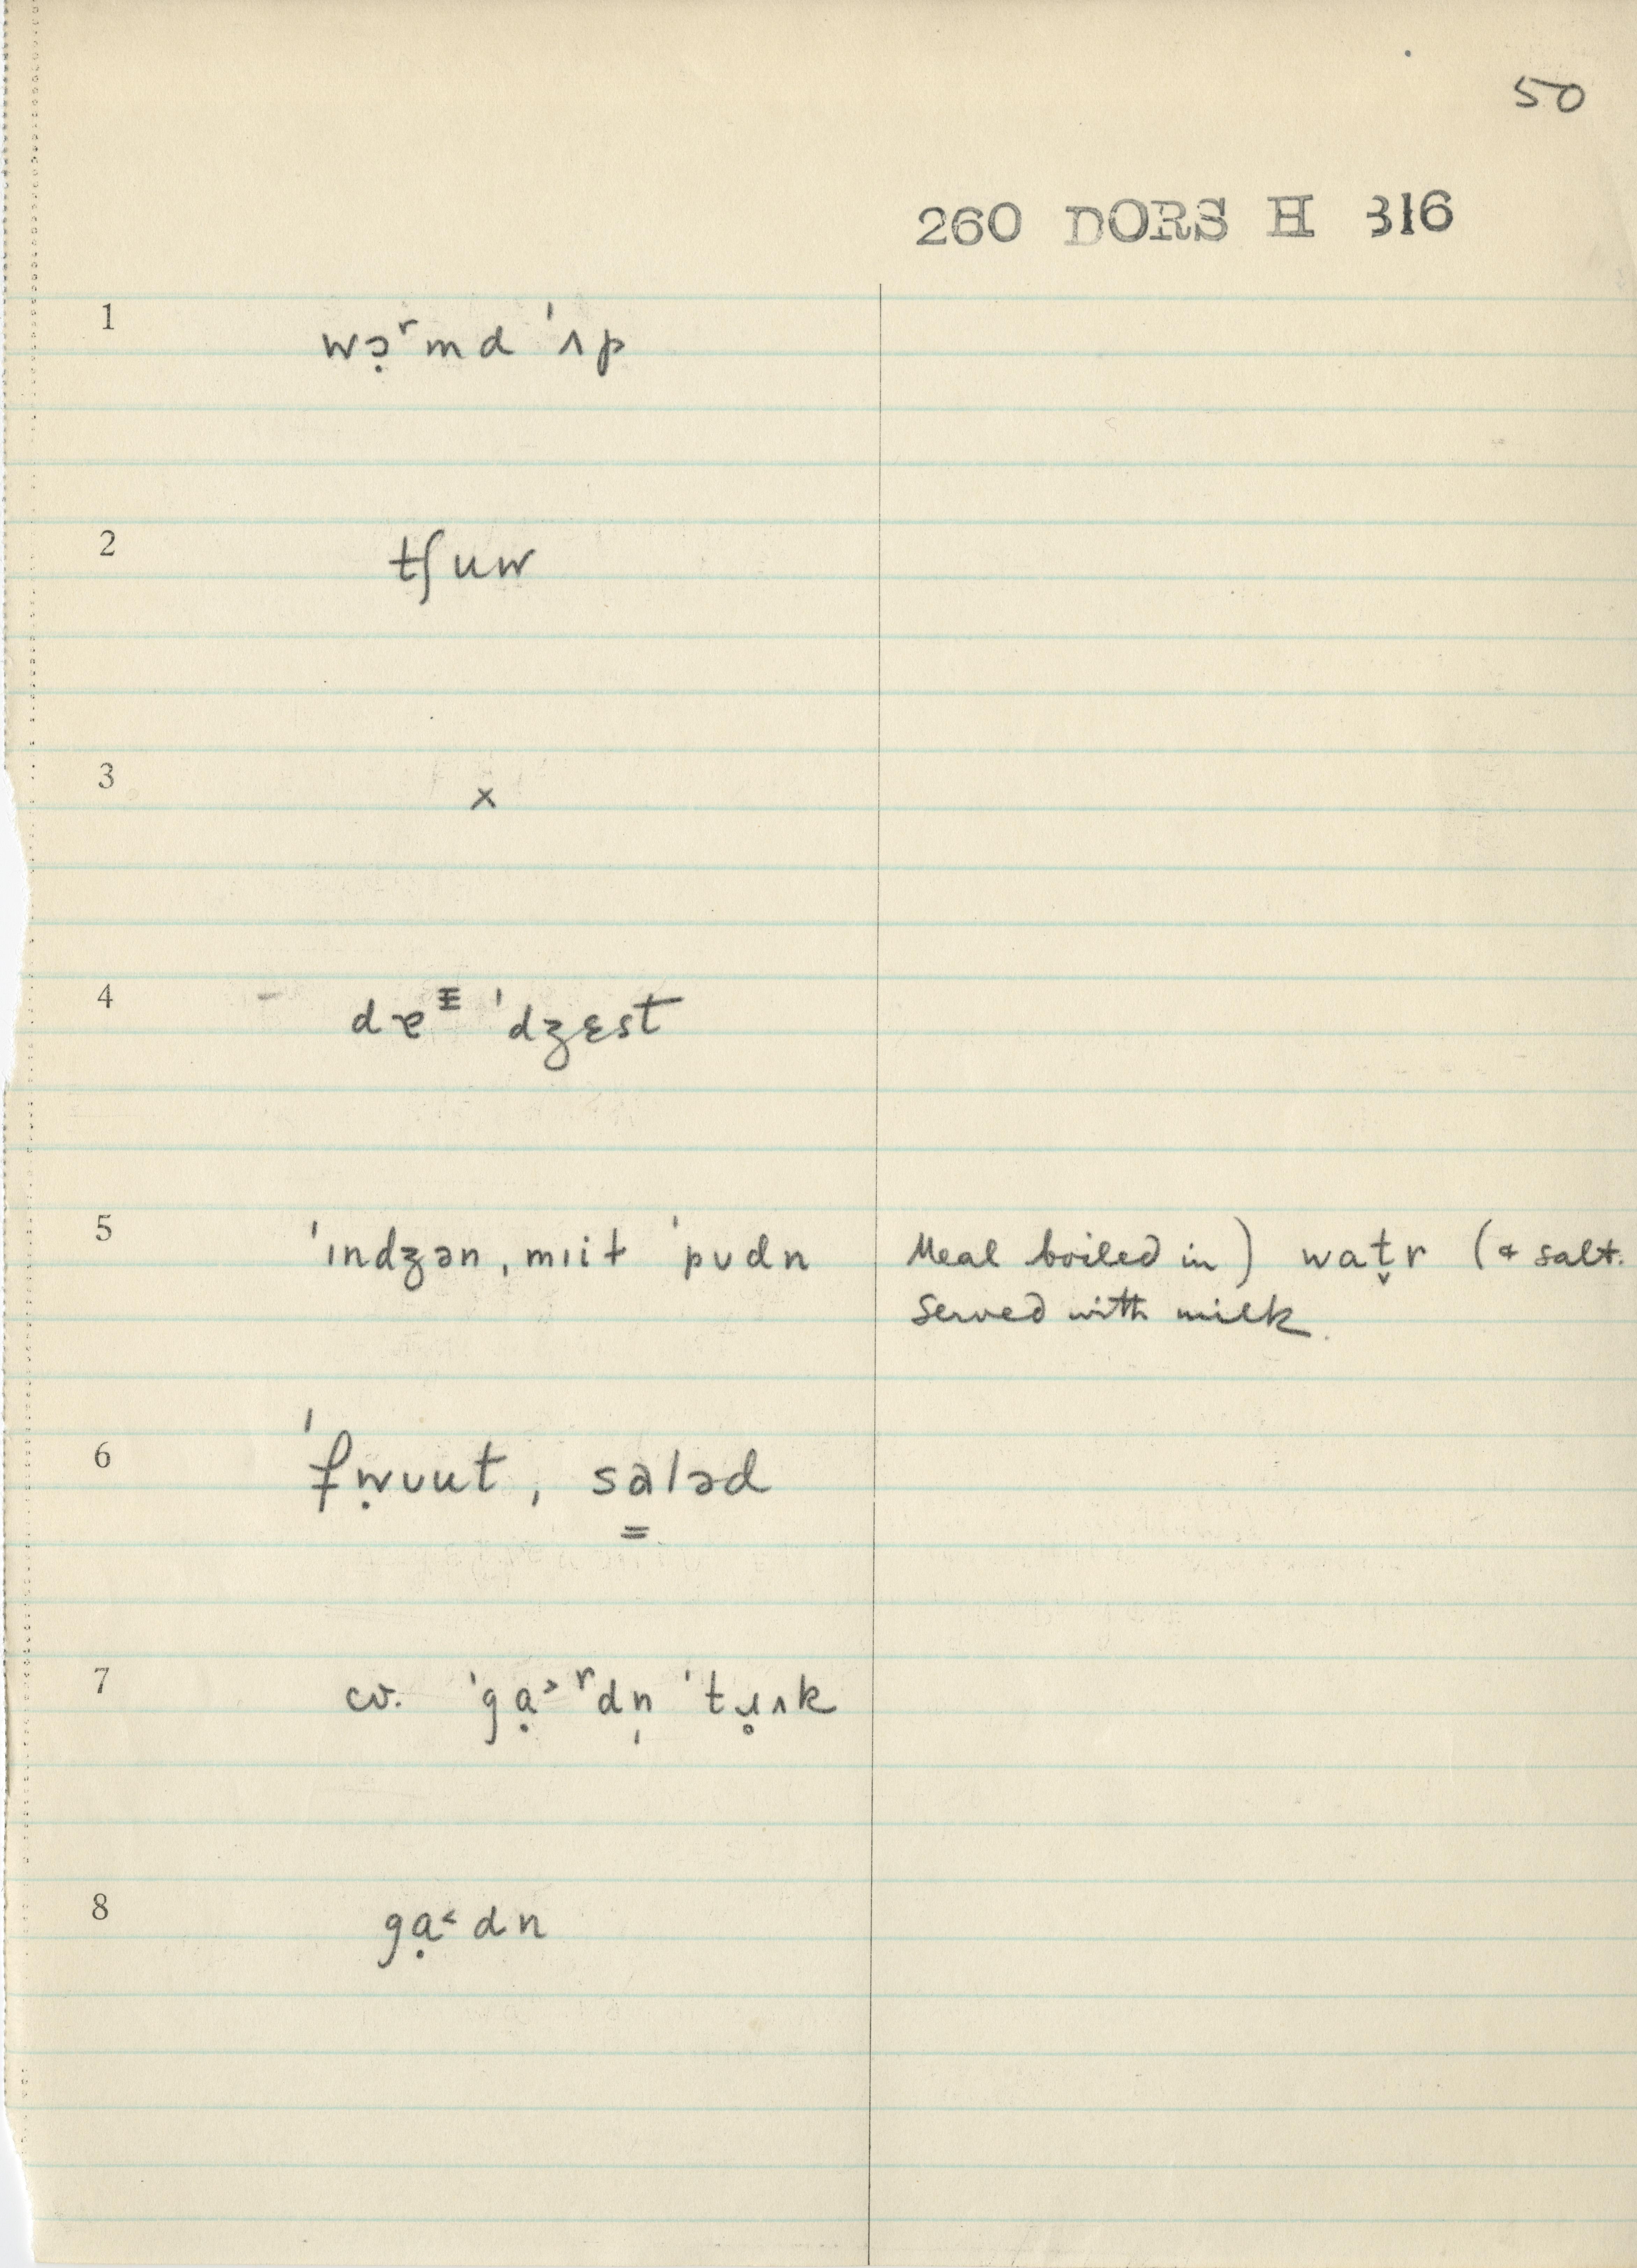 50
260 DORS H 316
1 wɔ̣ʳmd 'ʌp
2 tʃuw
3 x
4 'dʒɛst
5 'ɪndʒən, mɪit 'pʊdn Meal boiled in) wat̬r (& salt.
served with milk.
6 'fẉʊut, saləd
7 cv. 'gạ˃ʳdn̩ 'tɹ̥ʌk
8 gạ˂dn